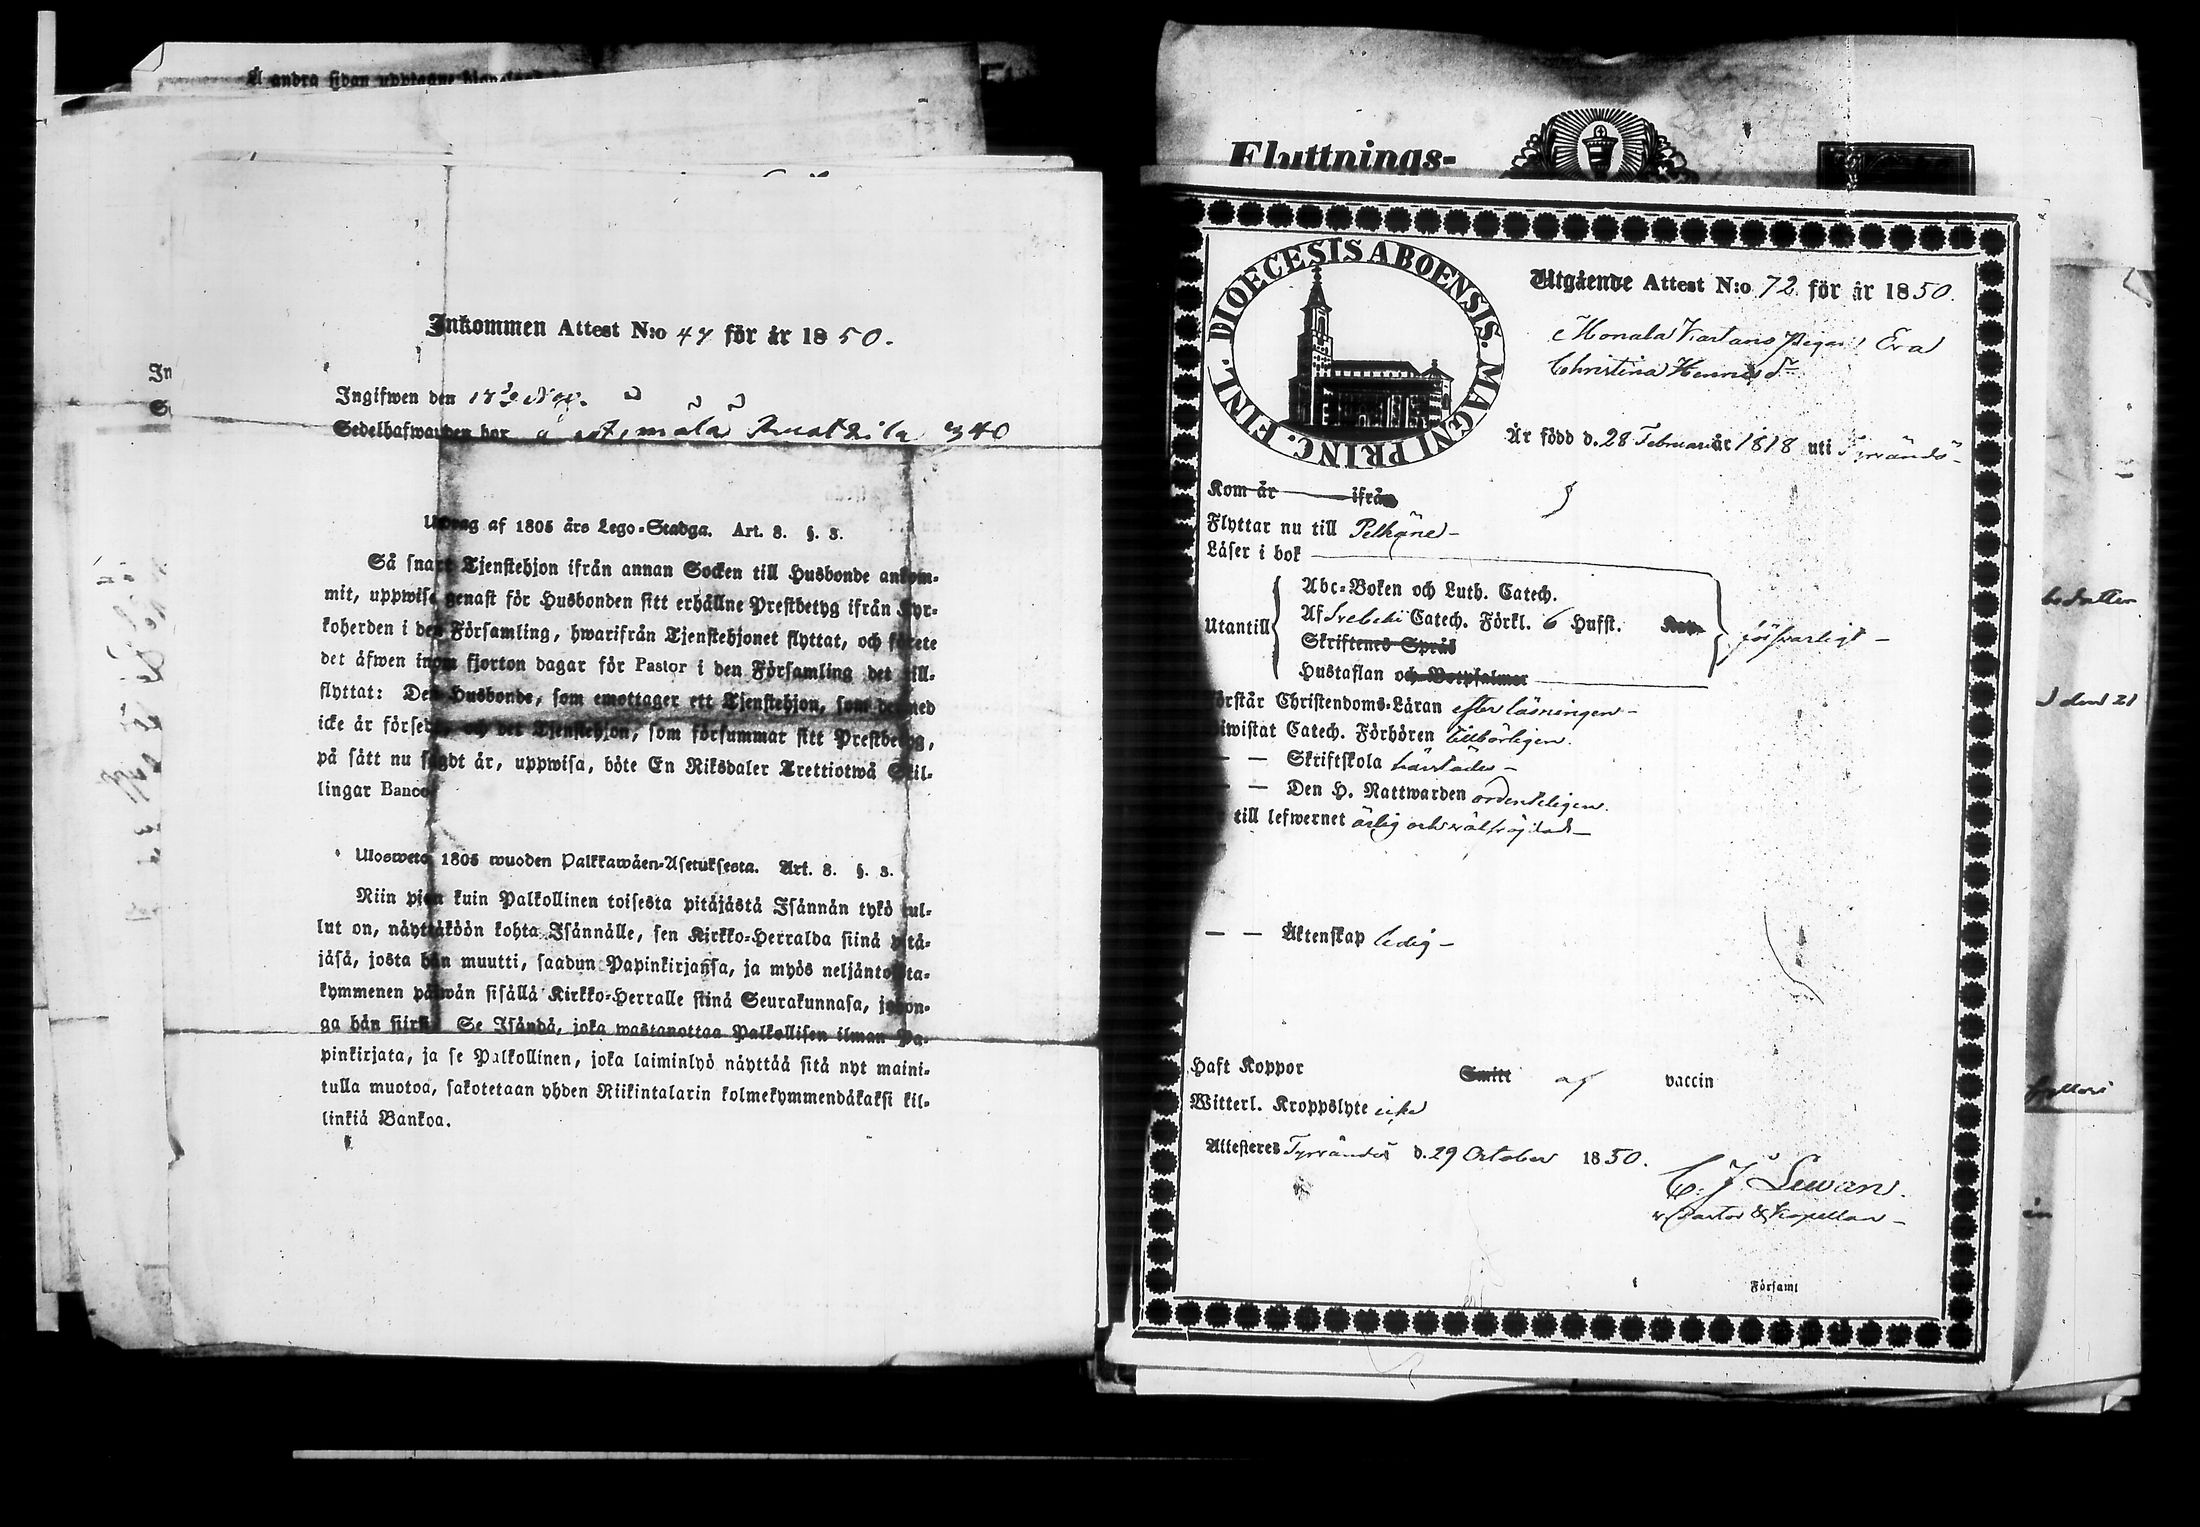 Å andra sidan upptagne
In
S
Inkommen Attest N:o 47 för år 1850.
Ingifwen den
Sedelhafwanden bor
Utdrag af 1805 års Lego-Stadga. Art. 8. §. 3.
Så snart Tjenstehjon ifrån annan Socken till Husbonde ankom-
mit, uppwise genast för Husbonden sitt erhållne Prestbetyg ifrån Kyr-
koherden i den Församling, hwarifrån Tjenstehjonet flyttat, och förete
det äfwen inom fjorton dagar för Pastor i den Församling det till-
flyttat: Den Husbonde, som emottager ett Tjenstehjon, som dermed
icke är försedt, och det Tjenstehjon, som försummar sitt Prestbetyg,
på sätt nu sagdt är, uppwisa, böte En Riksdaler Trettiotwå Skil-
lingar Banco.
Ulosweto 1805 wuoden Palkkawäen-Asetuksesta. Art. 8. §. 3.
Niin pian kuin Palkollinen toisesta pitäjästä Isännän tykö tul-
lut on, näyttäköön kohta Isännälle, sen Kirkko-Herralda siinä pitä-
jäsä, josta hän muutti, saadun Papinkirjansa, ja myös neljäntoista-
kymmenen päiwän sisällä Kirkko-Herralle siinä Seurakunnasa, johon-
ga hän siirsi. Se Isändä, joka wastanottaa Palkollisen ilman Pa-
pinkirjata, ja se Palkollinen, joka laiminlyö näyttää sitä nyt maini-
tulla muotoa, sakotetaan yhden Riikintalarin kolmekymmendäkaksi kil-
linkiä Bankoa.
Flyttnings-
DIOECESIS ABOENSIS. MAGNI PRINC. FINL.
Utgående Attest N:o 72 för år 1850.
Monala Kartano Pigan Eva
Christina Henriksdr
Är född d. 28 Februari år 1818 uti Tyrvändö
Kom år ifrån
Flyttar nu till Pelkäne
Läser i bok
Utantill
Abc-Boken och Luth. Catech.
Af Svebelii Catech. Förkl. 6 Hufst.
Skriftenes Språk
Hustaflan och Botpsalmer
försvarligt
Förstår Christendoms-Läran efter läsningen
Biwistat Catech. Förhören tillbörligen.
— — Skriftskola härstädes
— — Den H. Nattwarden ordenteligen.
till lefwernet ärlig och välfrejdad
— — Äktenskap ledig
Haft Koppor Smitt af vaccin
Witterl. Kroppslyte icke
Attesteres Tyrvändö d. 29 October 1850.
C. J. Lewan.
v. Pastor & Kapellan
Församl
den 21